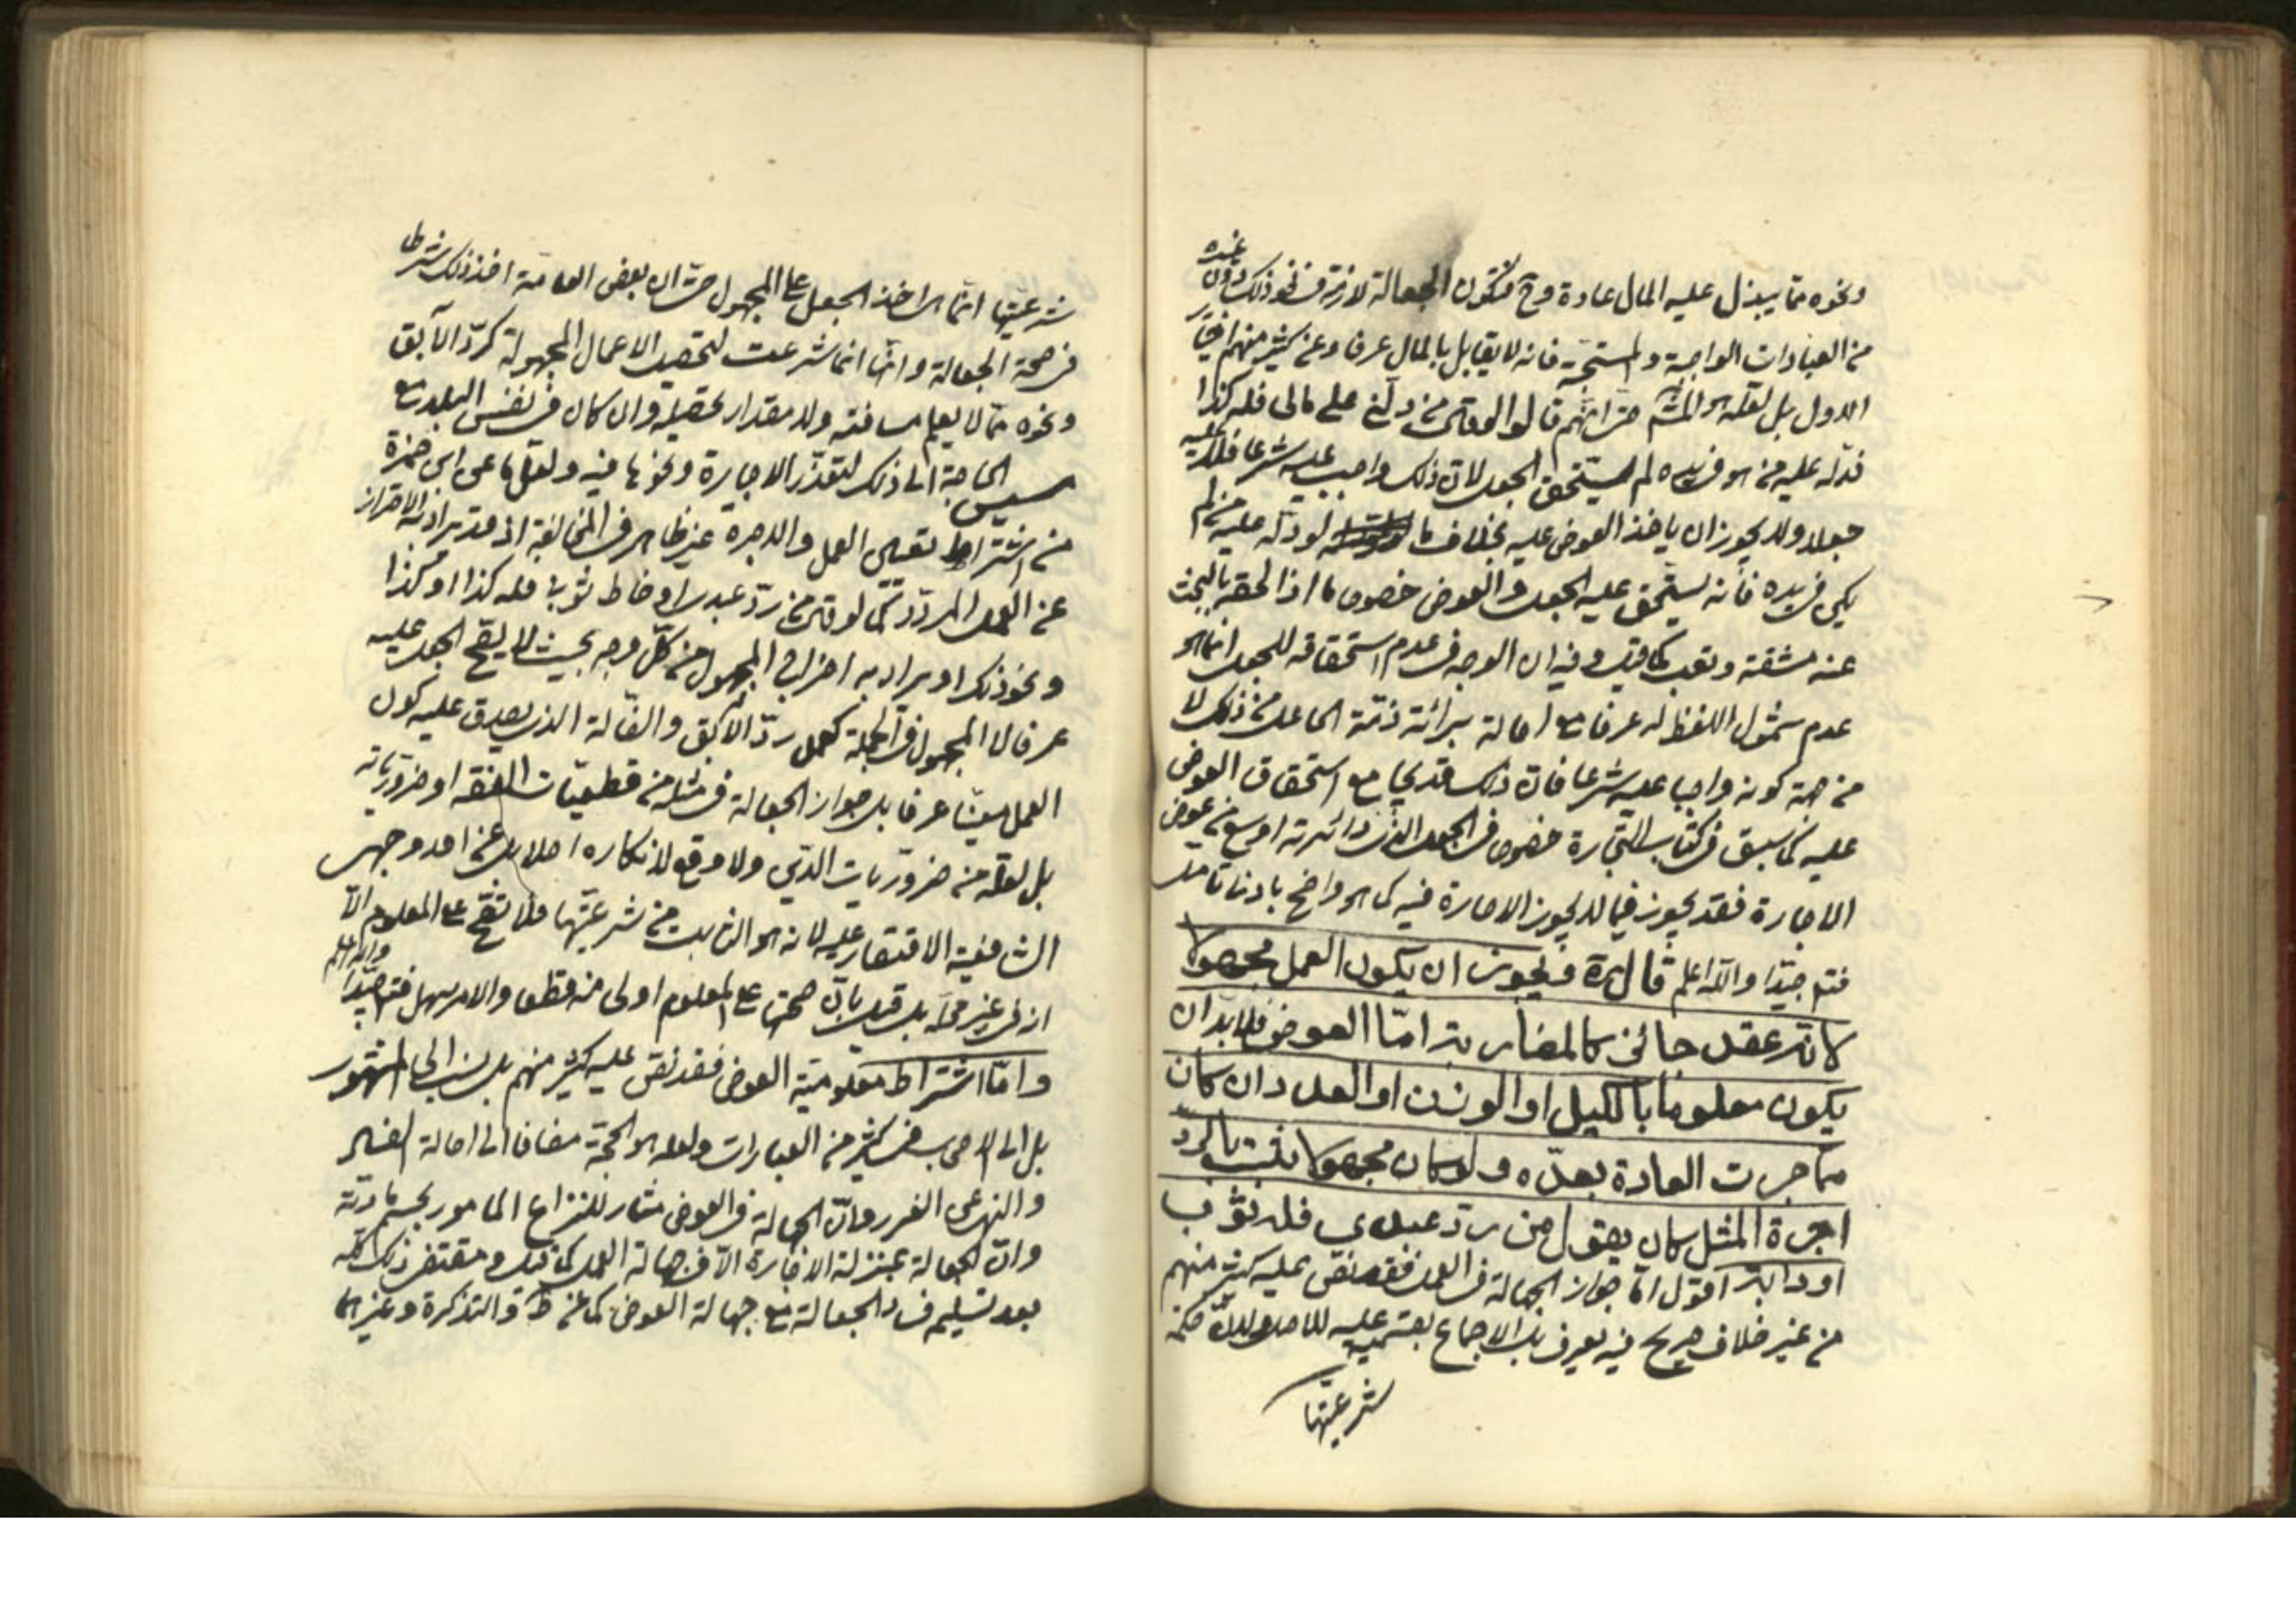 ونحوه مما يبذل عليه المال عادة وح فتكون الجعالة لازمة في نحو ذلك دون غيره
من العبادات الواجبة والمستحبة فانه لا يقابل بالمال عرفا وعن كثير منهم اختيار
الاول بل لعله هو المشهور حتى انهم قالوا لو قال من دلني على مالي فله كذا
فدله عليه من هو في يده لم يستحق الجعل لان ذلك واجب عليه شرعا فلا عليه
جعلا ولا يجوز ان ياخذ العوض عليه بخلاف ما لو دله عليه من لم
يكن في يده فانه يستحق عليه الجعل والعوض خصوصا اذا لحقه بالبحث
عنه مشقة وتعب كما قيل وفيه ان الوجه في عدم استحقاقه للجعل انما هو
عدم شمول اللفظ له عرفا مع اصالة برائة ذمة الجاعل من ذلك لا
من جهة كونه واجبا عليه شرعا فان ذلك قد يجامع استحقاق العوض
عليه كما سبق في كتاب التجارة خصوصا في الجعل الذي دائرته اوسع من عوض
الاجارة فقد يجوز فيما لا يجوز الاجارة فيه كما هو واضح بادنى تامل
فتامل جيدا والله اعلم قال ره ويجوز ان يكون العمل مجهولا
لانه عقد جائز كالمضاربة اما العوض فلا بد ان
يكون معلوما بالكيل او الوزن او العدد ان كان
مما جرت العادة بعده ولو كان مجهولا ثبت بالرد
اجرة المثل كان يقول من رد عبدي فله ثوب
او دابة اقول اما جواز الجهالة في العمل فقد نص عليه كثير منهم
من غير خلاف صريح فيه يعرف بل الاجماع بقسميه عليه للاصل ولان حكمة
شرعيتها
شرعيتها انما هي اخذ الجعل على المجهول حتى ان بعض العامة اخذ ذلك شرطا
في صحة الجعالة وانها انما شرعت لتحصيل الاعمال المجهولة كرد الآبق
ونحوه مما لا يعلم مسافته ولا مقدار تحصيله وان كان في نفس البلد مع
مسيس الحاجة الى ذلك لتعذر الاجارة ونحوها فيه ولعل ما عن ابن حمزة
من اشتراط تعيين العمل والاجرة غير ظاهر في المخالفة اذ قد يراد به الاحتراز
عن العمل المردد كما لو قال من رد عبدي او خاط ثوبا فله كذا او كذا
ونحو ذلك او يراد به اخراج المجهول من كل وجه بحيث لا يقع الجعل عليه
عرفا لا المجهول في الجملة كعمل رد الآبق والضالة الذي يصدق عليه كون
العمل معينا عرفا بل جواز الجعالة في مثله من قطعيات الفقه او ضرورياته
بل لعله من ضروريات الدين ولا موقع لانكاره اصلا بل عن احد وجهي
الشافعية الاقتصار عليه لانه هو الثابت من شرعيتها فلا تصح على المعلوم الا
انه في غير محله بل قيل بان صحتها على المعلوم اولى منه قطعا والامر سهل فتامل جيدا والله اعلم
واما اشتراط معلومية العوض فقد نص عليه كثير منهم بل نسب الى المشهور
بل الى الاصحاب في كثير من العبارات ولعله هو الحجة مضافا الى اصالة الفساد
والنهي عن الغرر ولان الجهالة في العوض مثار للنزاع المامور بحسم مادته
وان الجعالة بمنزلة الاجارة الا في جهالة العمل كما قيل ومقتضى ذلك كله
بعد تسليمه فساد الجعالة مع جهالة العوض كما عن ط والتذكرة وغيرهما